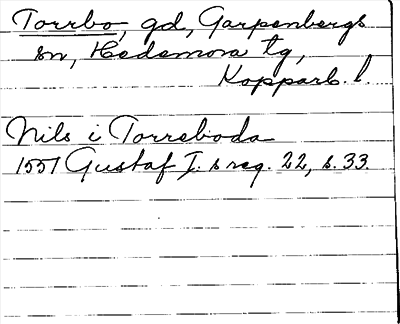 Torrbo, gd, Garpenbergs
sn, Hedemora tg,
Kopparb. l.
Nils i Torreboda
1551 Gustaf I. s reg. 22, s. 33.